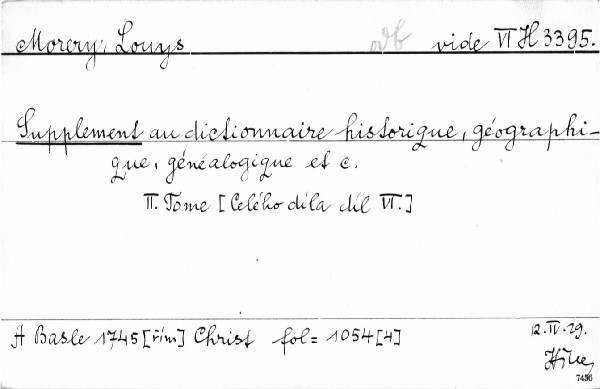 Morery, Louys vide VI H 3395.
Supplement au dictionnaire historique, géographi-
que, généalogique et c.
II. Tome [Celého díla díl VI.]
A Basle 1745 [řím] Christ fol= 1054 [4]
12.IV.29.
7436